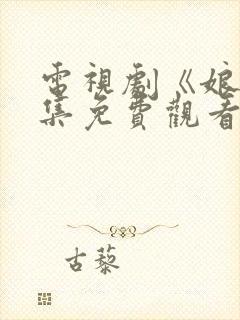 電視劇《娘
集免費觀看
古藜